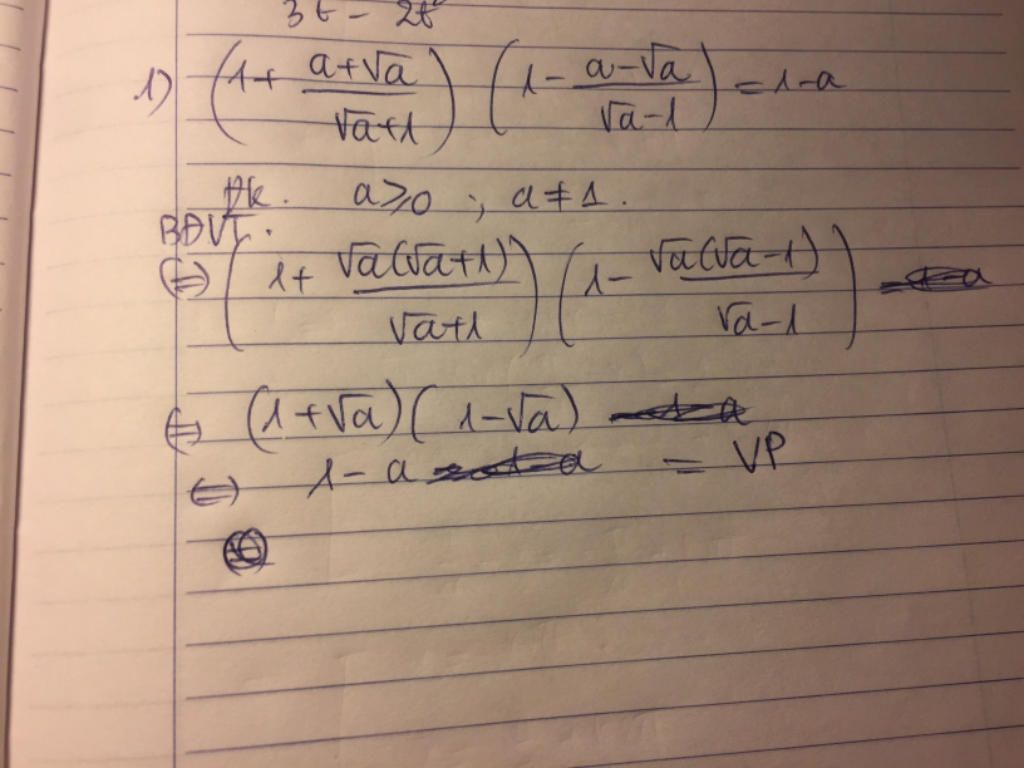 3t - 2t
1) (1 + (a+√a)/(√a+1)) (1 - (a-√a)/(√a-1)) = 1-a
Đk. a ≥ 0 ; a ≠ 1.
BĐVT.
(=) (1 + √a(√a+1)/(√a+1)) (1 - √a(√a-1)/(√a-1))
(=) (1+√a)(1-√a)
(=) 1-a = VP